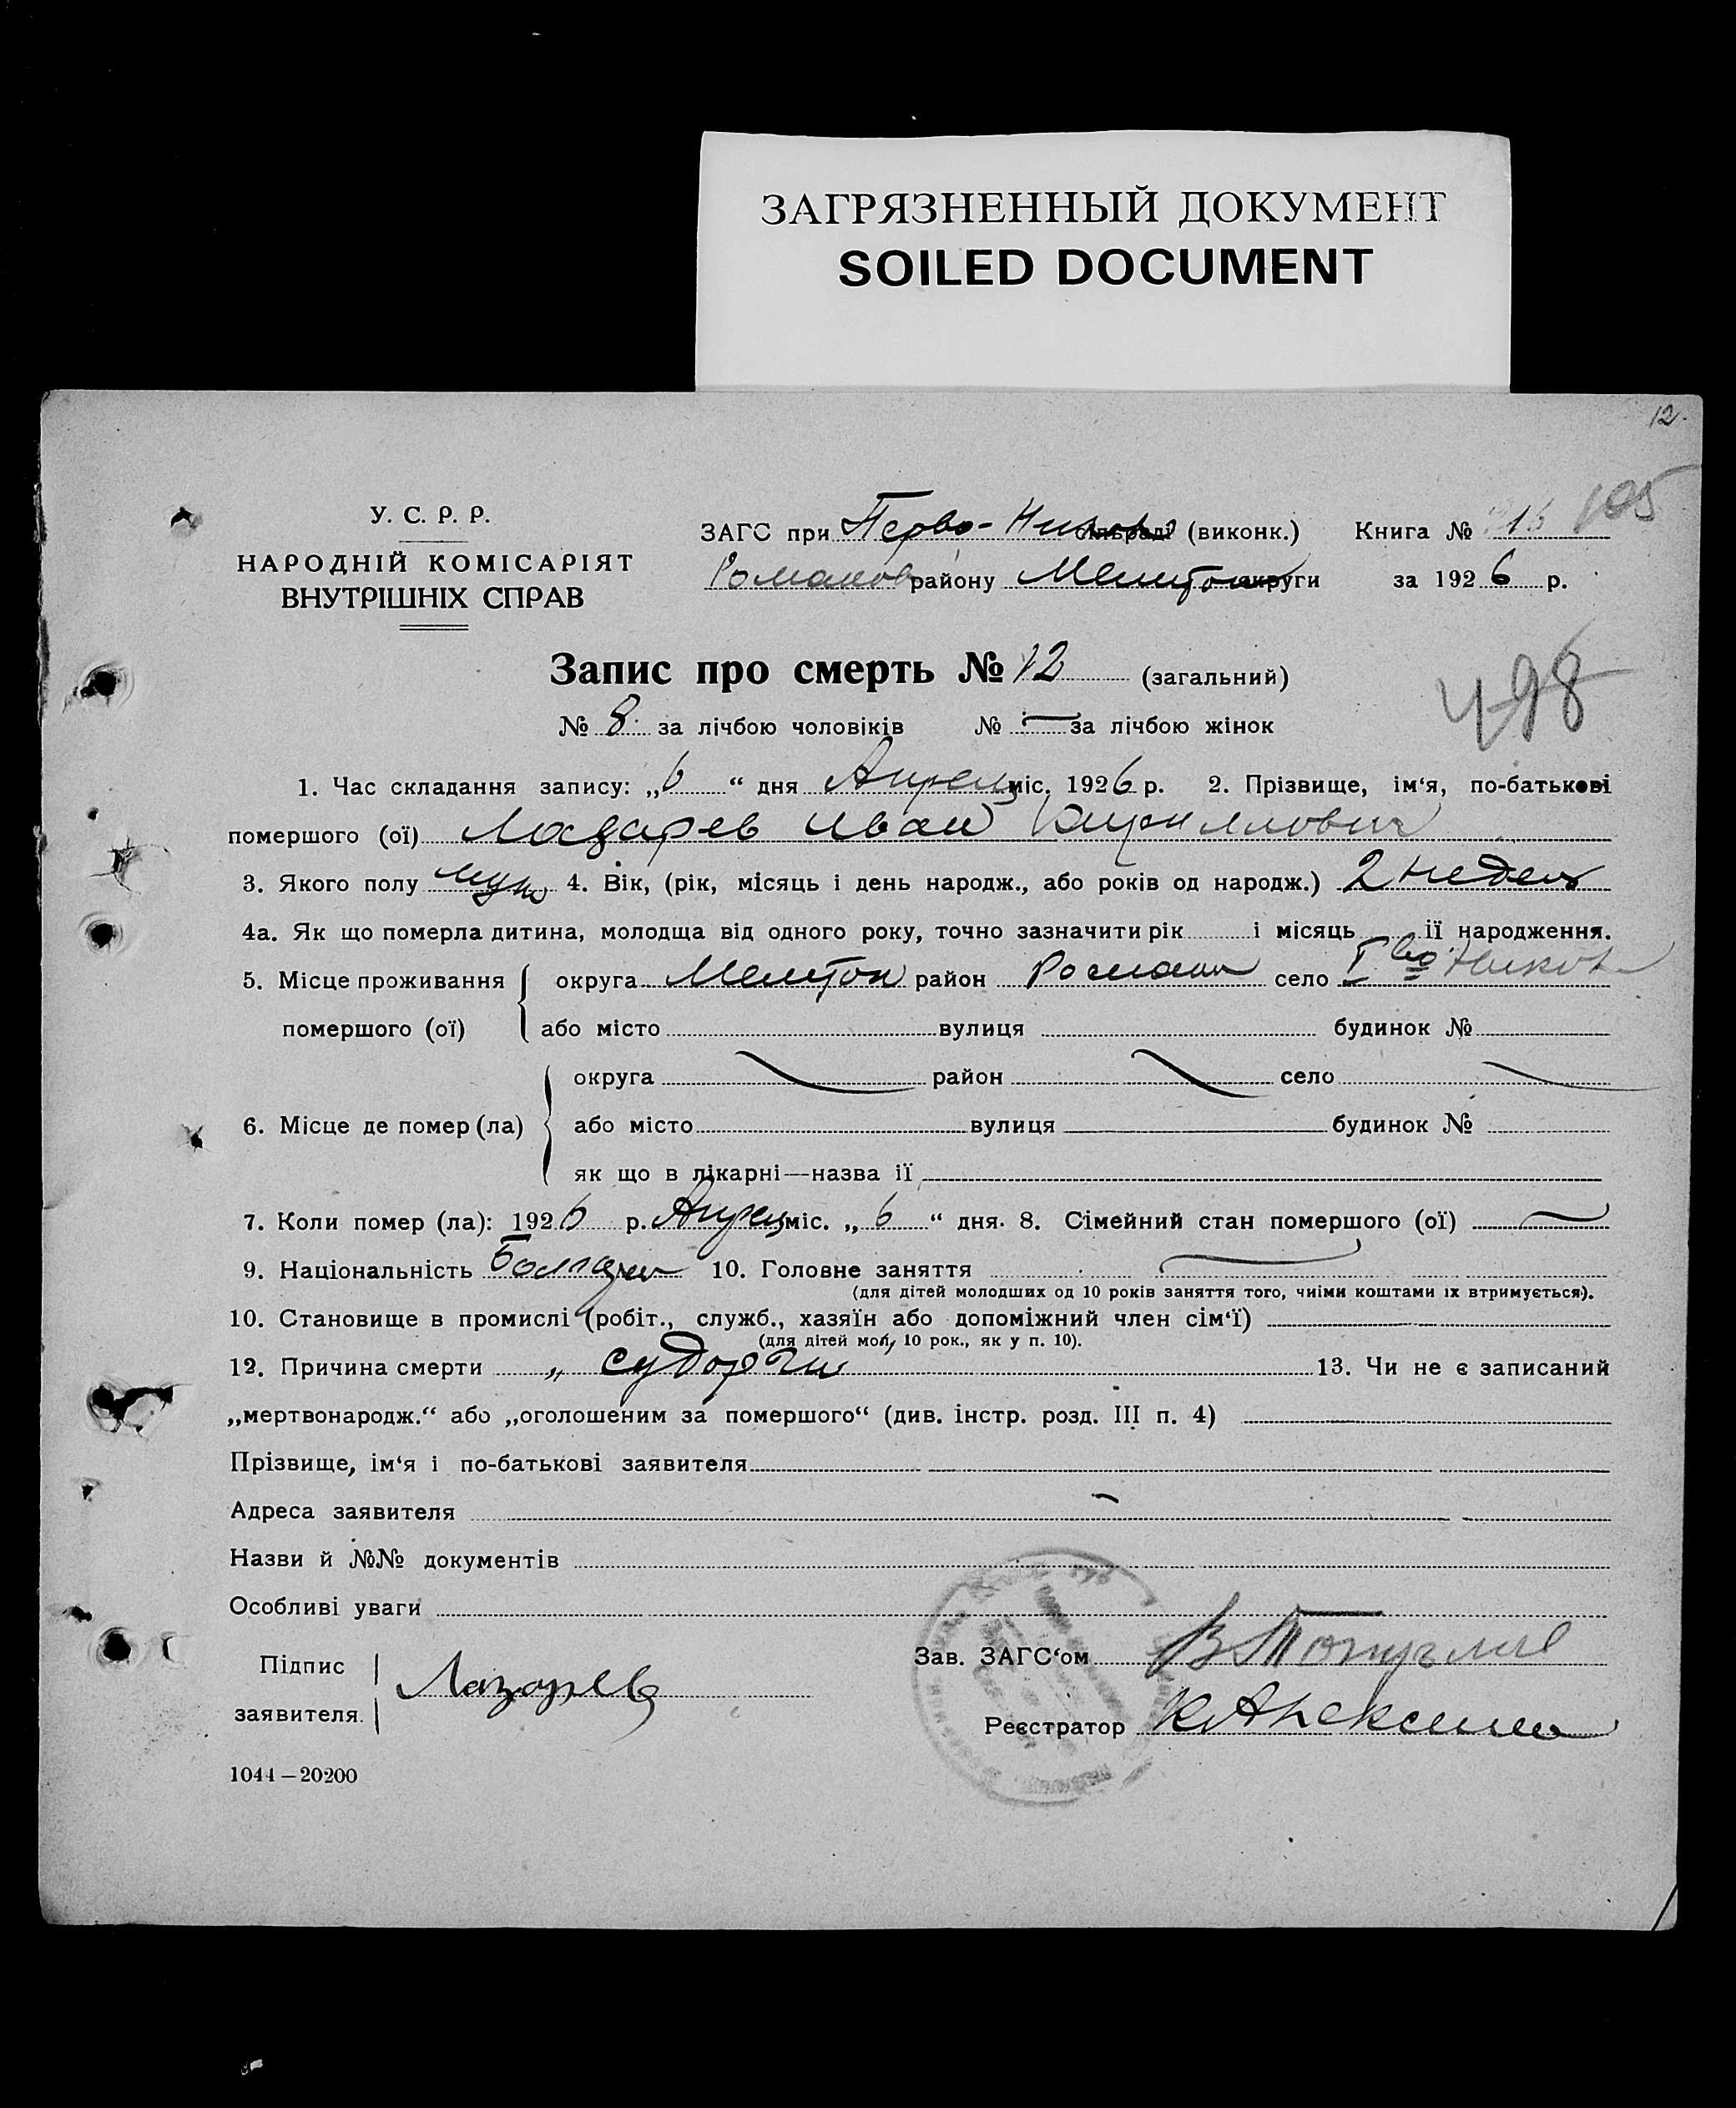 ЗАГРЯЗНЕННЫЙ ДОКУМЕНТ
SOILED DOCUMENT
12.
У. С. Р. Р.
НАРОДНІЙ КОМІСАРІЯТ
ВНУТРІШНІХ СПРАВ
ЗАГС при Перво-Николь сільраді (виконк.) Книга № 105
Романов району Мелитоп округи за 1926 р.
Запис про смерть № 12 (загальний)
498
№ 8. за лічбою чоловіків № — за лічбою жінок
1. Час складання запису: „6“ дня Апреля міс. 1926 р. 2. Прізвище, ім‘я, по-батькові
помершого (ої) Лазарев Иван Кириллович
3. Якого полу муж 4. Вік, (рік, місяць і день народж., або років од народж.) 2 недели
4а. Як що померла дитина, молодща від одного року, точно зазначити рік і місяць ії народження.
5. Місце проживання округа Мелитоп район Роман село Iво Никол
помершого (ої) або місто вулиця будинок №
округа район село
6. Місце де помер (ла) або місто вулиця будинок №
як що в лікарні—назва ії
7. Коли помер (ла): 1926 р. Апреля міс. „6“ дня. 8. Сімейний стан помершого (ої) —
9. Національність Болгарин 10. Головне заняття —
(для дітей молодших од 10 років заняття того, чиїми коштами їх втримується).
10. Становище в промислі (робіт., служб., хазяїн або допоміжний член сім‘ї)
(для дітей мол, 10 рок., як у п. 10).
12. Причина смерти „ судороги 13. Чи не є записаний
„мертвонародж.“ або „оголошеним за помершого“ (див. інстр. розд. III п. 4)
Прізвище, ім‘я і по-батькові заявителя
Адреса заявителя
Назви й №№ документів
Особливі уваги
Підпис заявителя. Лазарев
Зав. ЗАГС‘ом
Реєстратор
1044—20200